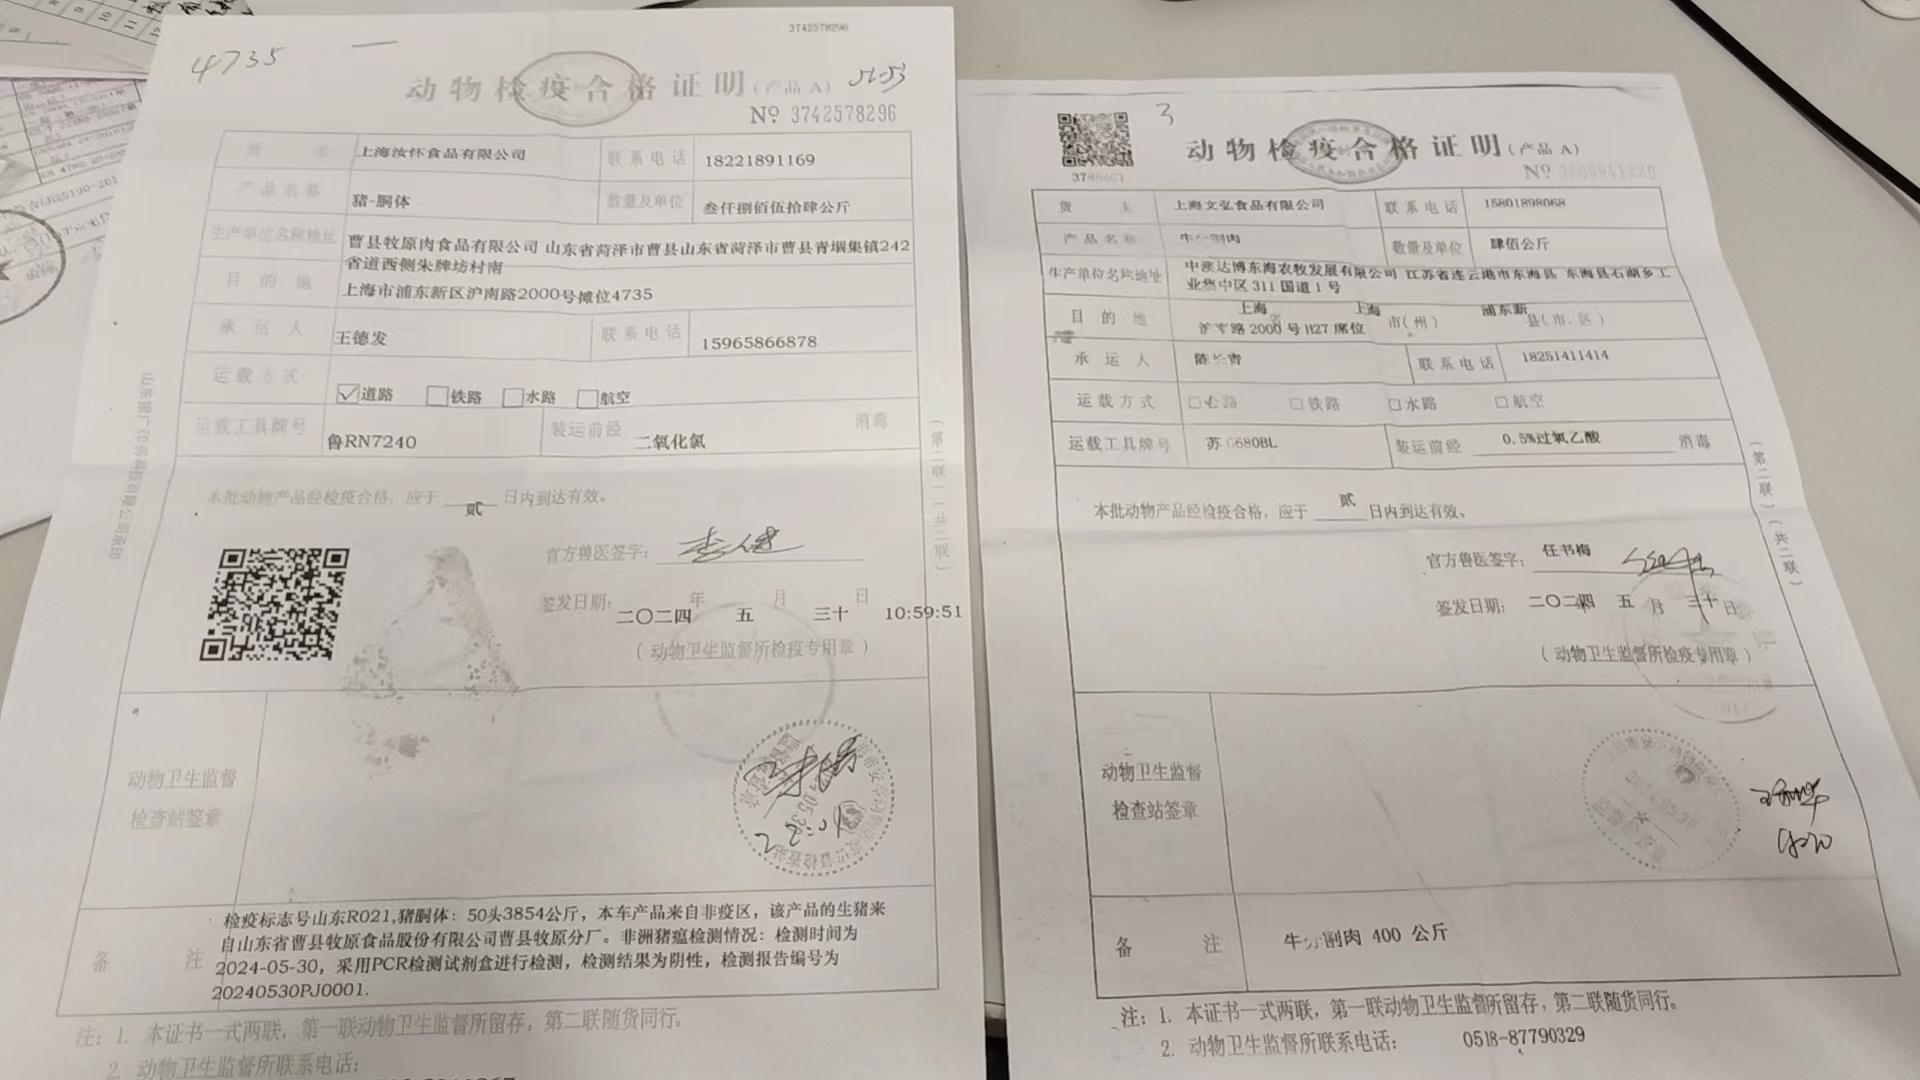 3742578296
4735
动物检疫合格证明(产品 A)
5153
№ 3742578296
货 主 上海汝怀食品有限公司 联系电话 18221891169
产品名称 猪-胴体 数量及单位 叁仟捌佰伍拾肆公斤
生产单位名称地址 曹县牧原肉食品有限公司 山东省菏泽市曹县山东省菏泽市曹县青堌集镇242
省道西侧朱牌坊村南
目的地 上海市浦东新区沪南路2000号摊位4735
承运人 王德发 联系电话 15965866878
运载方式 ☑道路 □铁路 □水路 □航空
运载工具牌号 鲁RN7240 装运前经 二氧化氯 消毒
(第二联)(共二联)
本批动物产品经检疫合格,应于 贰 日内到达有效。
官方兽医签字: 李健
签发日期: 二〇二四 年 五 月 三十 日 10:59:51
(动物卫生监督所检疫专用章)
动物卫生监督
检查站签章
备 注
检疫标志号山东R021,猪胴体:50头3854公斤,本车产品来自非疫区,该产品的生猪来
自山东省曹县牧原食品股份有限公司曹县牧原分厂。非洲猪瘟检测情况:检测时间为
2024-05-30,采用PCR检测试剂盒进行检测,检测结果为阴性,检测报告编号为
20240530PJ0001.
注:1. 本证书一式两联,第一联动物卫生监督所留存,第二联随货同行。
2. 动物卫生监督所联系电话:
3
动物检疫合格证明(产品 A)
№
货 主 上海文弘食品有限公司 联系电话 15801898068
产品名称 牛分割肉 数量及单位 肆佰公斤
生产单位名称地址 中澳达博东海农牧发展有限公司 江苏省连云港市东海县 东海县石湖乡工
业集中区 311 国道 1 号
目的地 上海 省 上海 市(州) 浦东新 县(市、区)
沪南路 2000 号 H27 席位
承运人 陈长青 联系电话 18251411414
运载方式 □公路 □铁路 □水路 □航空
运载工具牌号 苏G680BL 装运前经 0.5%过氧乙酸 消毒
(第二联)(共二联)
本批动物产品经检疫合格,应于 贰 日内到达有效。
官方兽医签字: 任书梅
签发日期: 二〇二四 年 五 月 三十 日
(动物卫生监督所检疫专用章)
动物卫生监督
检查站签章
2024.05.30
备 注 牛分割肉 400 公斤
注:1. 本证书一式两联,第一联动物卫生监督所留存,第二联随货同行。
2. 动物卫生监督所联系电话: 0518-87790329